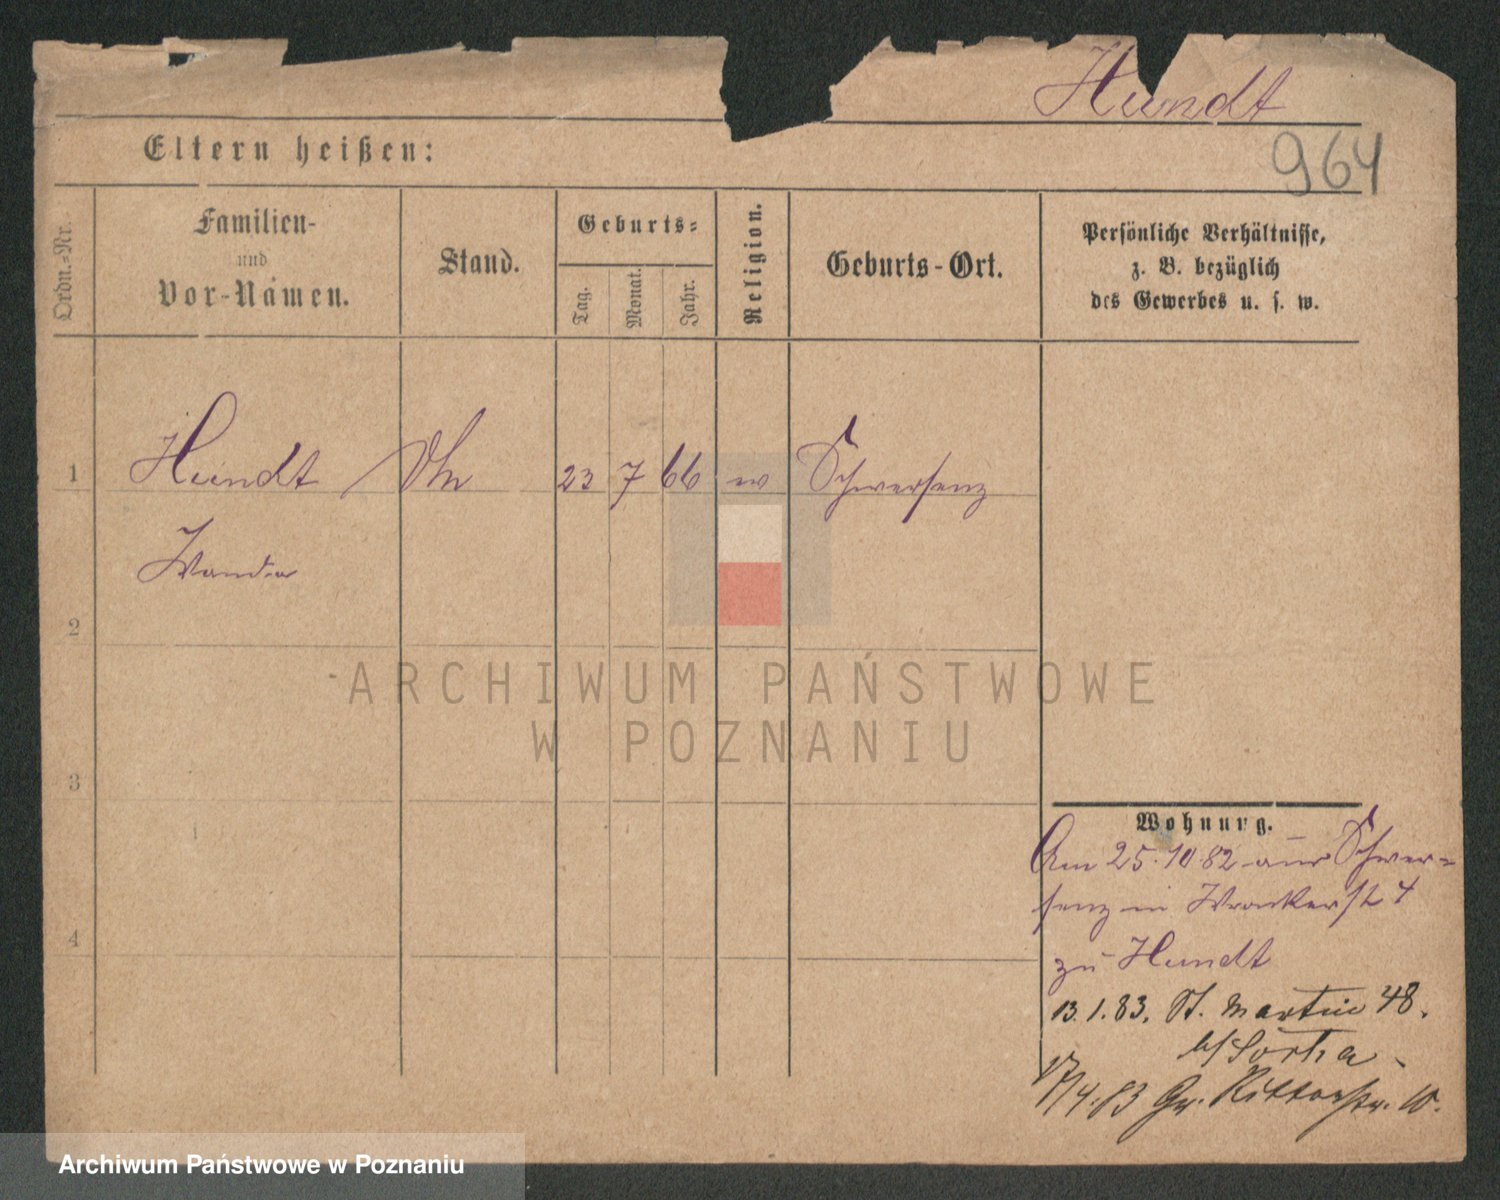 Hundt
964
Eltern heißen:
Ordn.-Nr.
Familien-
und
Vor-Namen.
Stand.
Geburts-
Tag.
Monat.
Jahr.
Religion.
Geburts-Ort.
Persönliche Verhältnisse,
z. B. bezüglich
des Gewerbes u. s. w.
1 Hundt 23 7 66 Schwersenz
Wanda
2
3
4
Wohnung.
Am 25.10.82 aus Schwer-
senz in Wronkerstr 4
zu Hundt
13.1.83. St. Martin 48.
17/4.83 Gr. Ritterstr. 10.
ARCHIWUM PAŃSTWOWE
W POZNANIU
Archiwum Państwowe w Poznaniu